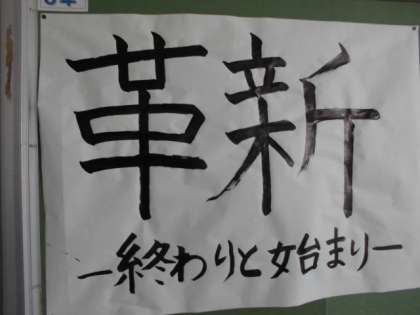 革新
ー終わりと始まりー